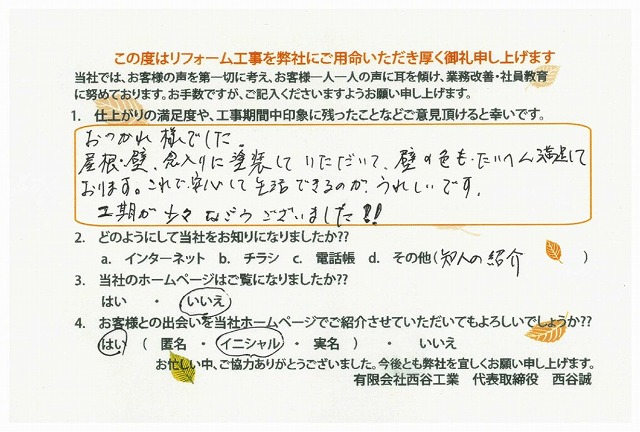 この度はリフォーム工事を弊社にご用命いただき厚く御礼申し上げます
当社では、お客様の声を第一切に考え、お客様一人一人の声に耳を傾け、業務改善・社員教育
に努めております。お手数ですが、ご記入くださいますようお願い申し上げます。
1. 仕上がりの満足度や、工事期間中印象に残ったことなどご意見頂けると幸いです。
おつかれ様でした。
屋根・壁、念入りに塗装していただいて、壁の色も・たいへん満足して
おります。これで安心して生活できるのが、うれしいです。
工期が少々ながうございました!!
2. どのようにして当社をお知りになりましたか??
a. インターネット b. チラシ c. 電話帳 d. その他(知人の紹介 )
3. 当社のホームページはご覧になりましたか??
はい ・ いいえ
4. お客様との出会いを当社ホームページでご紹介させていただいてもよろしいでしょうか??
はい ( 匿名・イニシャル・実名 ) ・ いいえ
お忙しい中、ご協力ありがとうございました。今後とも弊社を宜しくお願い申し上げます。
有限会社西谷工業 代表取締役 西谷誠